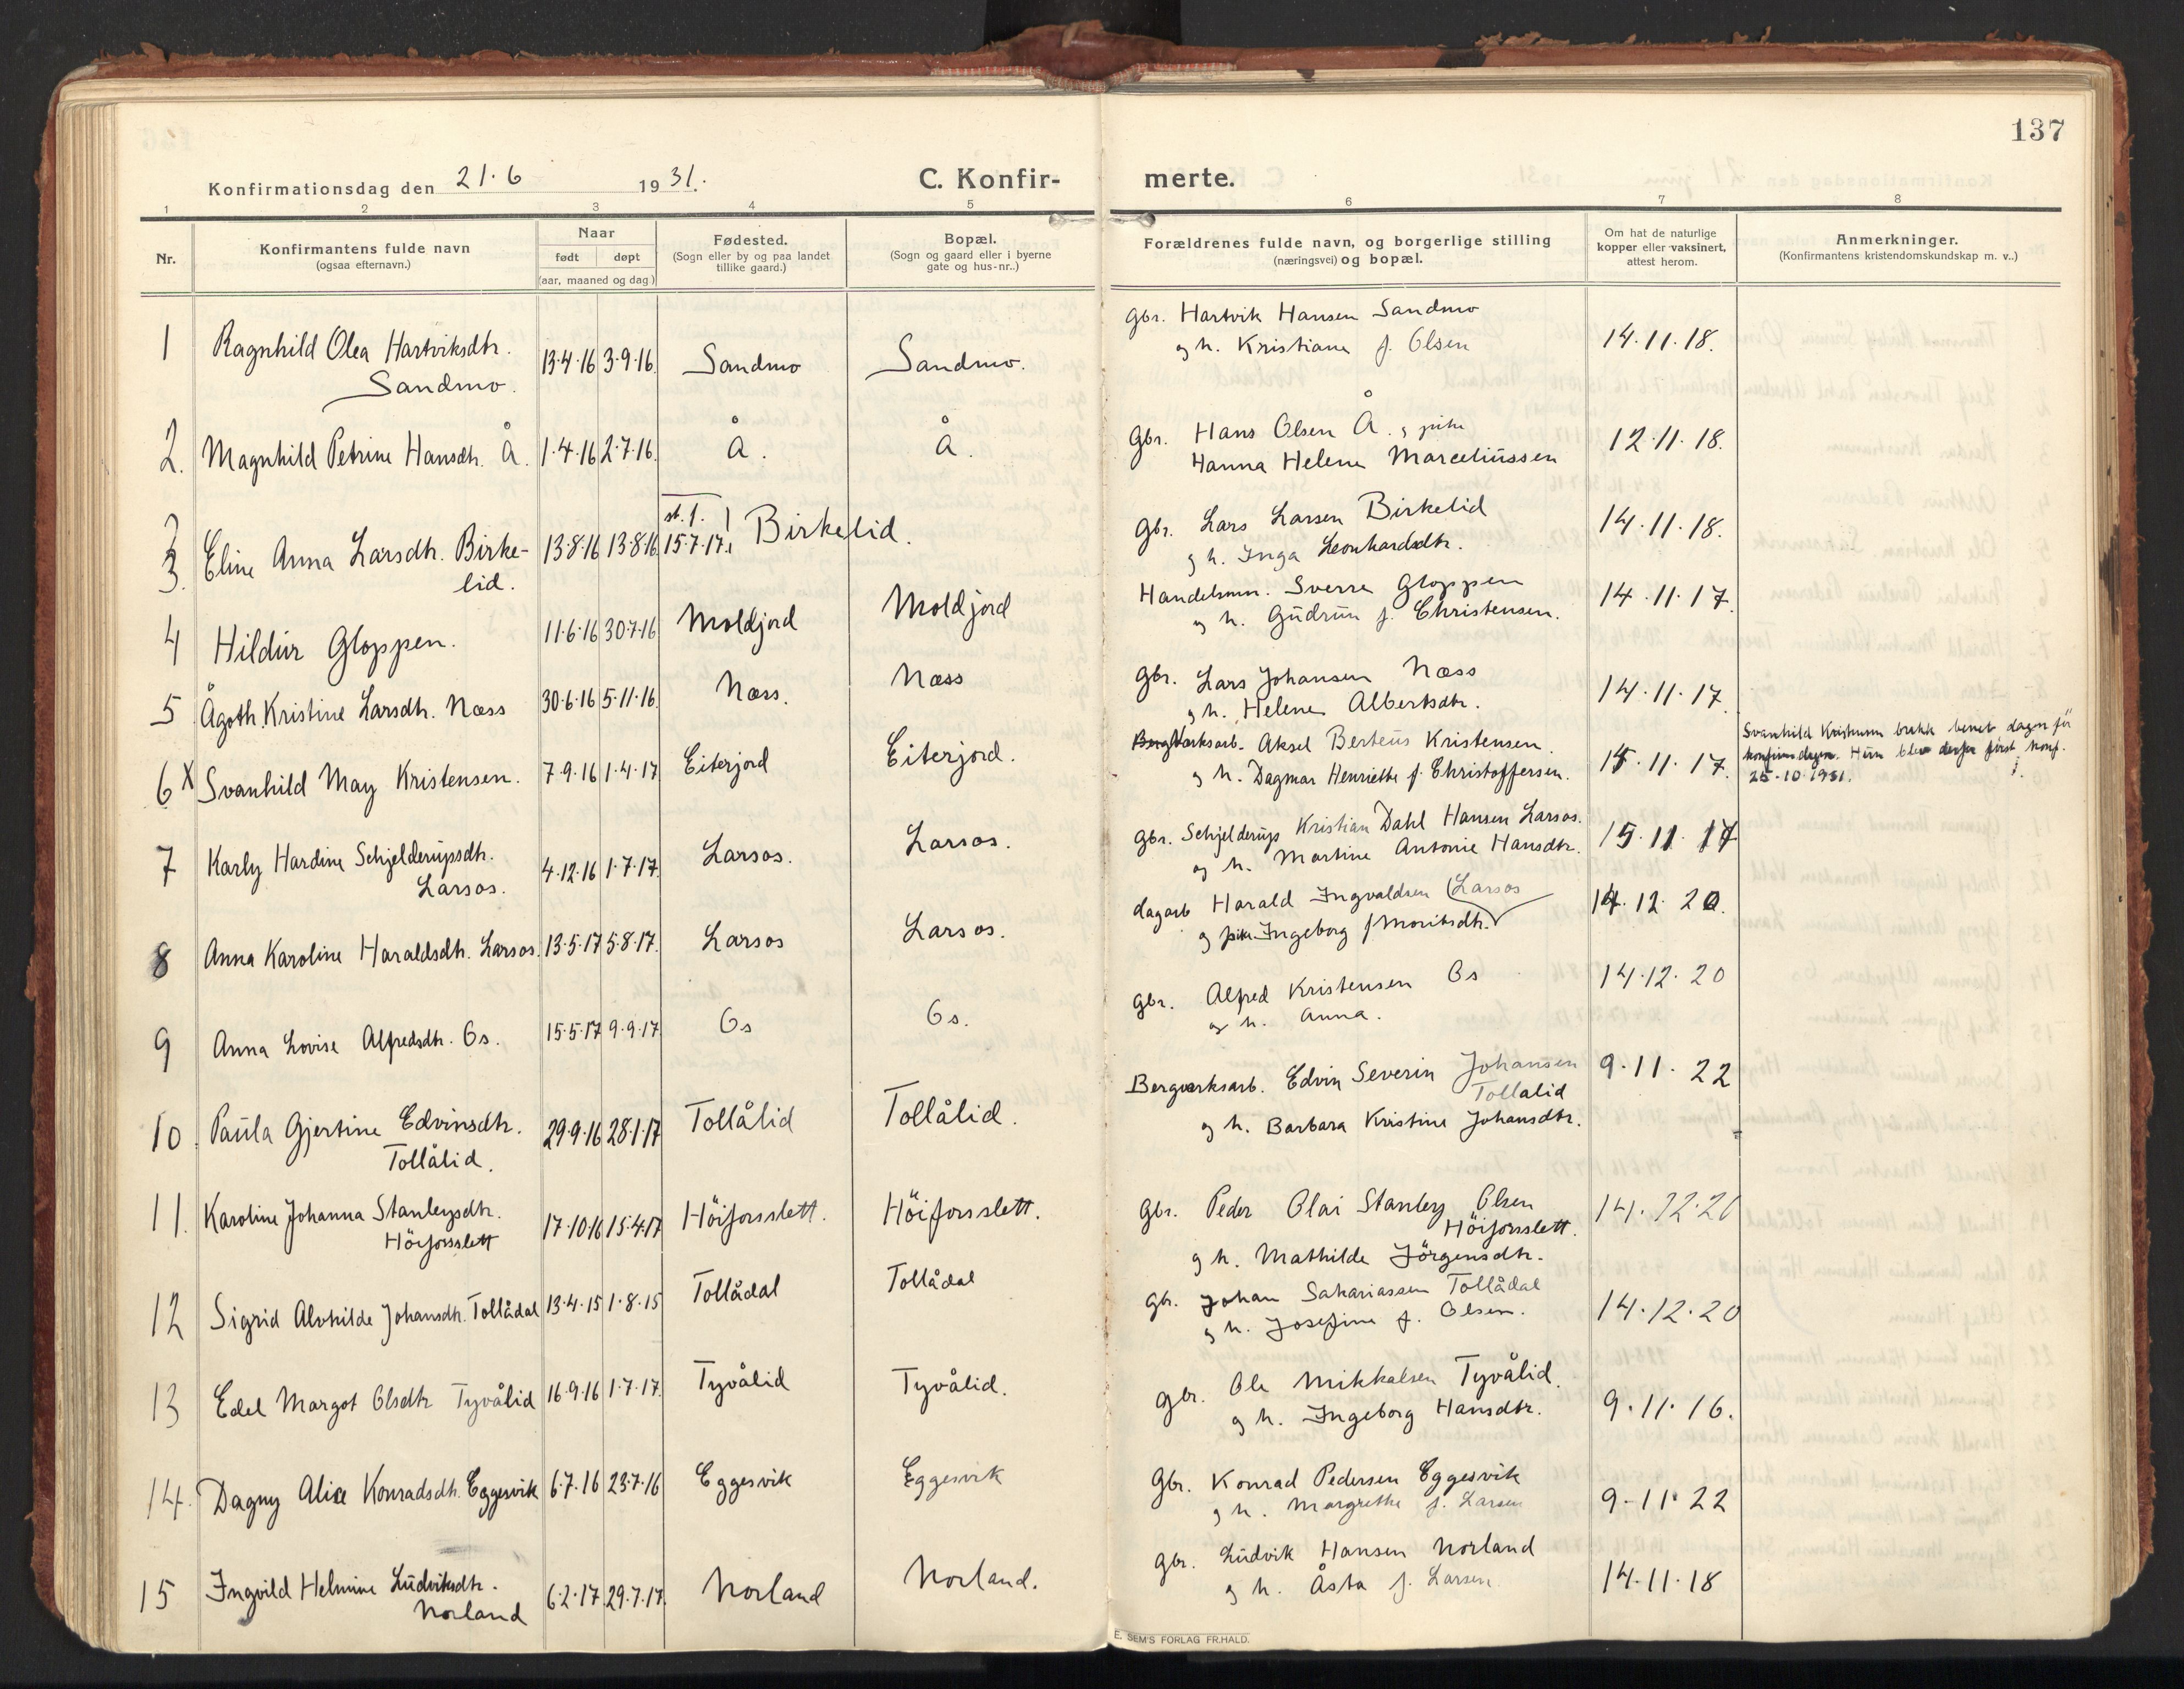 137
Konfirmationsdag den 21.6 1931.
C. Konfir-
merte.
1 2 3 4 5 6 7 8
Nr.
Konfirmantens fulde navn
(ogsaa efternavn.)
Naar
født døpt
(aar, maaned og dag)
Fødested.
(Sogn eller by og paa landet
tillike gaard.)
Bopæl.
(Sogn og gaard eller i byerne
gate og hus-nr..)
Forældrenes fulde navn, og borgerlige stilling
(næringsvei) og bopæl.
Om hat de naturlige
kopper eller vaksinert,
attest herom.
Anmerkninger.
(Konfirmantens kristendomskundskap m. v..)
1 Ragnhild Olea Hartviksdtr. 13.4.16 3.9.16. Sandmo Sandmo. Gbr. Hartvik Hansen Sandmo 14.11.18.
Sandmo. og h. Kristiane f. Olsen
2. Magnhild Petrine Hansdtr. Å. 1.4.16 2.7.16. Å. Å. Gbr. Hans Olsen Å. og pike 12.11.18.
Hanna Helene Marceliussen
3. Eline Anna Larsdtr. Birke- 13.8.16 13.8.16 st. f. 15.7.17. Birkelid. Gbr. Lars Larsen Birkelid 14.11.18.
lid. og h. Inga Leonhardsdtr.
4 Hildur Gloppen. 11.6.16 30.7.16 Moldjord Moldjord Handelsmn. Sverre Gloppen 14.11.17.
og h. Gudrun f. Christensen.
5 Ågoth Kristine Larsdtr. Næss 30.6.16 5.11.16. Næss. Næss Gbr. Lars Johansen Næss 14.11.17.
og h. Helene Albertsdtr.
6 x Svanhild May Kristensen. 7.9.16 1.4.17 Eiterjord Eiterjord. Bergverksarb. Aksel Berteus Kristensen. 15.11.17.
og h. Dagmar Henriette f. Christoffersen.
Svanhild Kristensen brakk benet dagen før
konfirm.dagen. Hun blev derfor først konf.
25.10.1931.
7 Karly Hardine Schjelderupsdtr. 4.12.16 1.7.17. Larsos. Larsos. Gbr. Schjelderup Kristian Dahl Hansen Larsos. 15.11.17
Larsos. og h. Martine Antonie Hansdtr.
8 Anna Karoline Haraldsdtr. Larsos. 13.5.17 5.8.17. Larsos Larsos. dagarb Harald Ingvaldsen (Larsos 14.12.20.
og pike Ingeborg f Moritsdtr.
9 Anna Lovise Alfredsdtr. Os. 15.5.17 9.9.17. Os Os. Gbr. Alfred Kristensen Os 14.12.20
og h. Anna.
10. Paula Gjertine Edvinsdtr. 29.9.16 28.1.17 Tollålid Tollålid. Bergverksarb. Edvin Severin Johansen 9.11.22
Tollålid. Tollalid
og h. Barbara Kristine Johansdtr.
11. Karoline Johanna Stanleysdtr. 17.10.16 15.4.17 Höiforsslett. Höiforsslett. Gbr. Peder Olai Stanley Olsen 14.12.20
Höiforsslett Höiforsslett.
og h. Mathilde Jörgensdtr.
12 Sigrid Alvhilde Johansdtr. Tollådal 13.4.15 1.8.15 Tollådal Tollådal Gbr. Johan Sakariassen Tollådal 14.12.20
og h. Josefine f. Olsen.
13 Edel Margot Olsdtr Tyvålid 16.9.16 1.7.17. Tyvålid Tyvålid. Gbr. Ole Mikkalsen Tyvålid. 9.11.16.
og h. Ingeborg Hansdtr.
14. Dagny Alice Konradsdtr. Eggesvik 6.7.16 23.7.16 Eggesvik Eggesvik Gbr. Konrad Pedersen Eggesvik 9.11.22
og h. Margrethe f. Larsen
15 Ingvild Helmine Ludviksdtr. 6.2.17. 29.7.17. Norland Norland. Gbr. Ludvik Hansen Norland 14.11.18
Norland og h. Åsta f. Larsen.
E. SEM'S FORLAG FR.HALD.